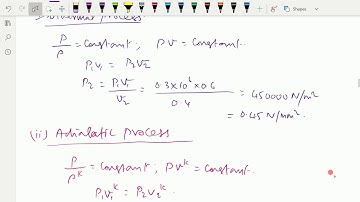 Shapes
process
P/ρ = Constant ; PV = Constant.
P₁V₁ = P₂V₂
P₂ = P₁V₁/V₂ = 0.3×10⁶×0.6/0.4 = 450000 N/m²
= 0.45 N/mm².
(ii) Adiabatic process
P/ρᵏ = Constant ; PVᵏ = Constant.
P₁V₁ᵏ = P₂V₂ᵏ.